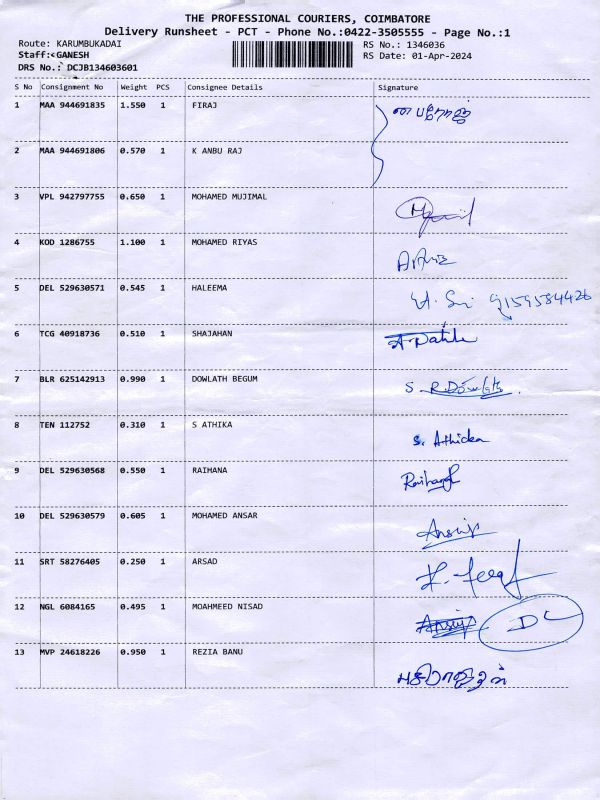 THE PROFESSIONAL COURIERS, COIMBATORE
Delivery Runsheet - PCT - Phone No.:0422-3505555 - Page No.:1
Route: KARUMBUKADAI
RS No.: 1346036
Staff:<GANESH
RS Date: 01-Apr-2024
DRS No.: DCJB134603601
S No Consignment No Weight PCS Consignee Details Signature
1 MAA 944691835 1.550 1 FIRAJ
2 MAA 944691806 0.570 1 K ANBU RAJ
3 VPL 942797755 0.650 1 MOHAMED MUJIMAL
4 KOD 1286755 1.100 1 MOHAMED RIYAS
5 DEL 529630571 0.545 1 HALEEMA 9159584426
6 TCG 40918736 0.510 1 SHAJAHAN
7 BLR 625142913 0.990 1 DOWLATH BEGUM
8 TEN 112752 0.310 1 S ATHIKA S. Athika
9 DEL 529630568 0.550 1 RAIHANA
10 DEL 529630579 0.605 1 MOHAMED ANSAR
11 SRT 58276405 0.250 1 ARSAD
12 NGL 6084165 0.495 1 MOAHMEED NISAD DL
13 MVP 24618226 0.950 1 REZIA BANU